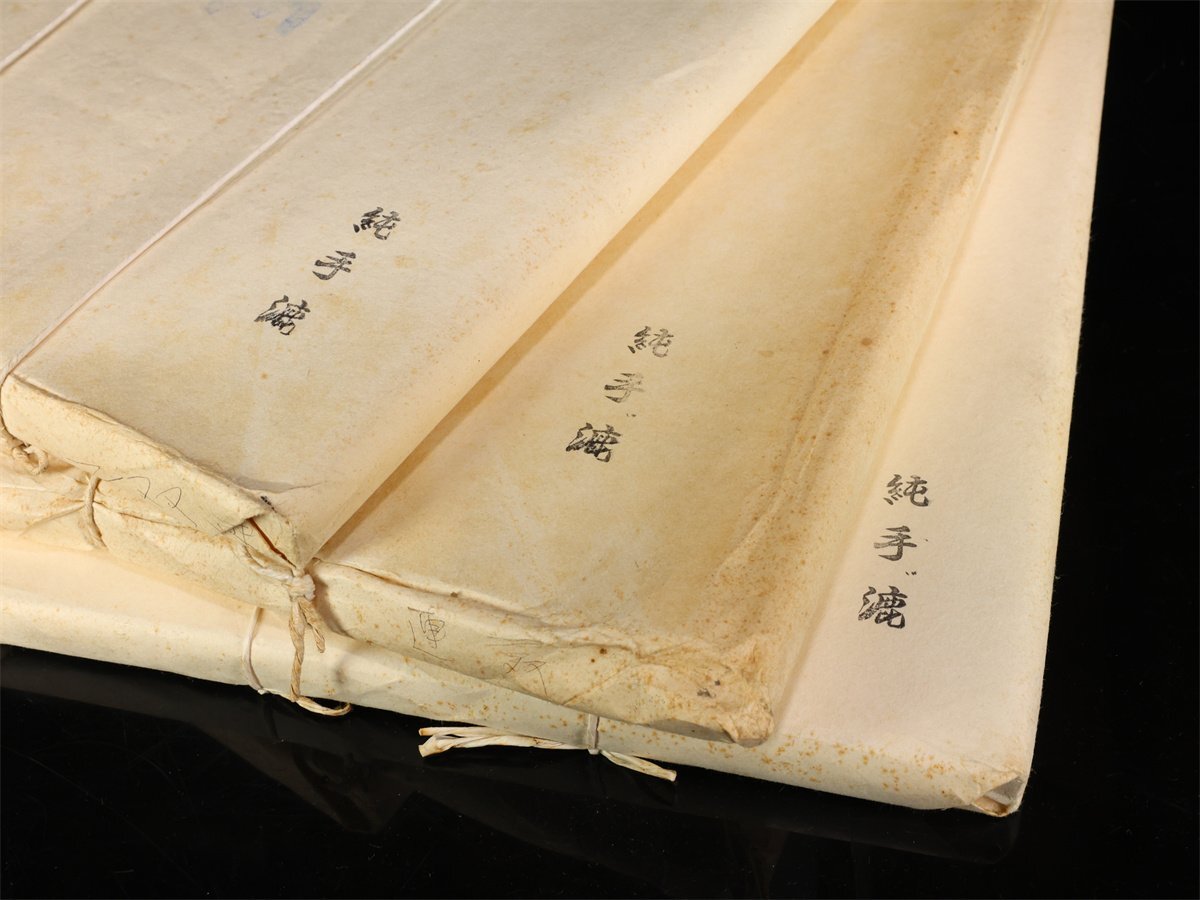 純手漉
純手漉
純手漉